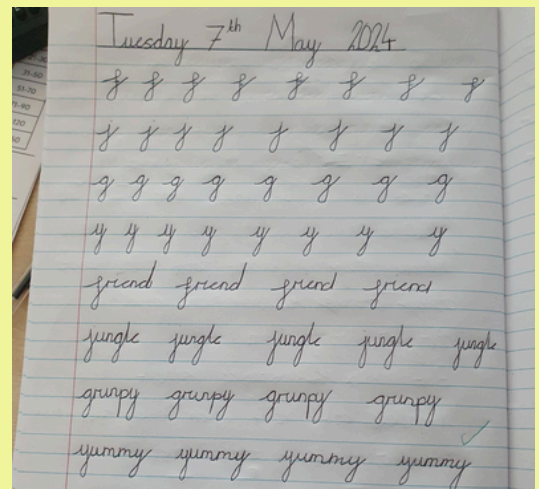 Tuesday 7th May 2024
f f f f f f f f
j j j j j j j j
g g g g g g g g
y y y y y y y y
friend friend friend friend
jungle jungle jungle jungle jungle
grunpy grunpy grunpy grunpy
yummy yummy yummy yummy
51-70